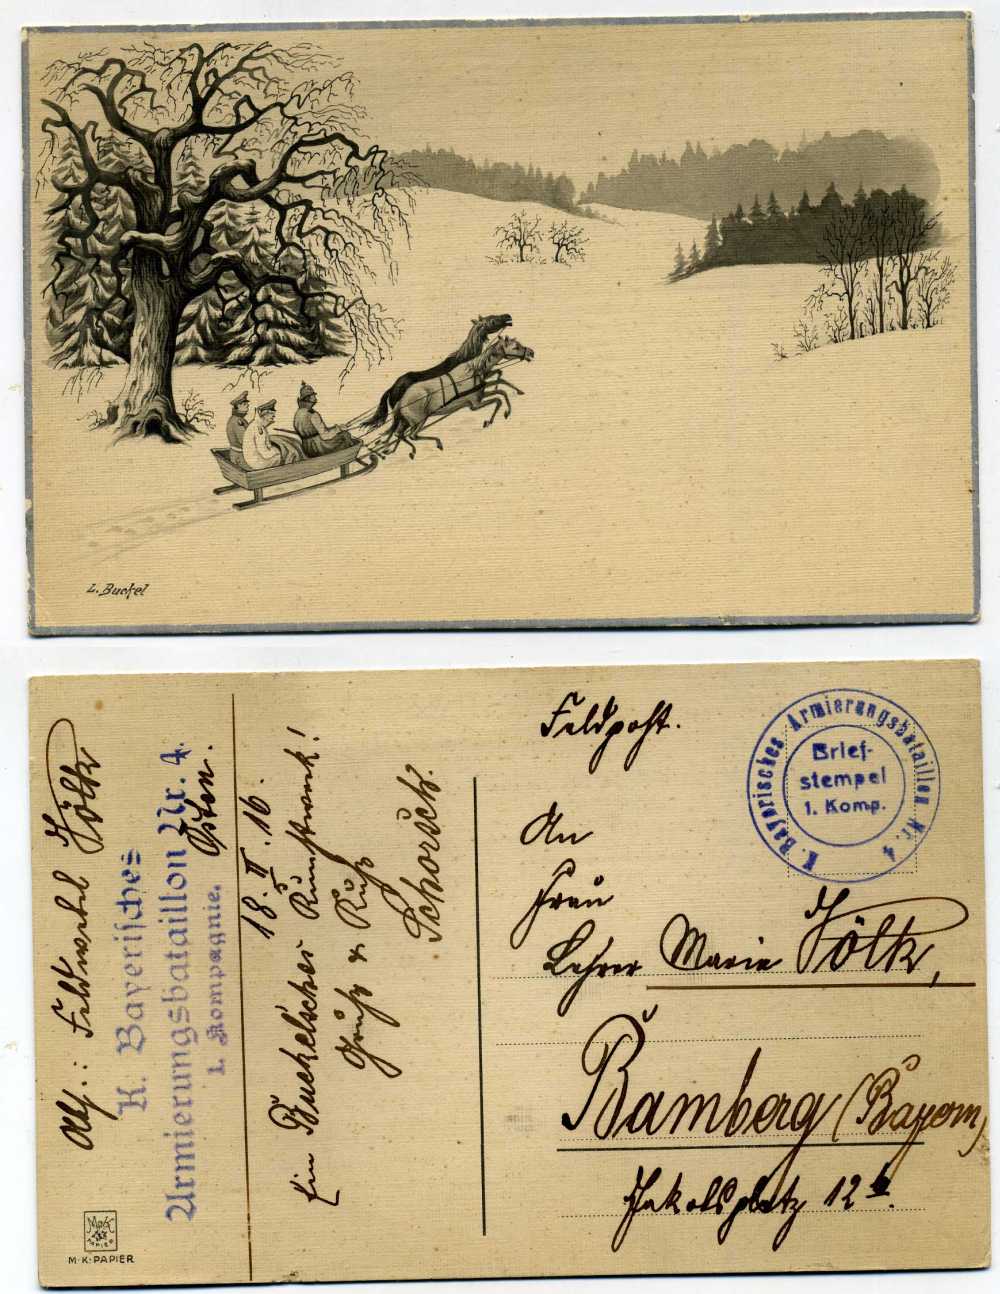 L. Buckel
Feldpost.
K. Bayerisches Armierungsbataillon Nr. 4
Brief-
stempel
1. Komp.
An
Frau
Lehrer Marie Hölk,
Bamberg (Bayern)
Jakobsplatz 12
Abs.: Feldwebel Hölk
K. Bayerisches
Armierungsbataillon Nr. 4.
1. Kompagnie.
Osten.
18. II. 16.
Ein Buckelsches Kunstwerk!
Gruß u. Kuß
Schorsch.
M·K·PAPIER